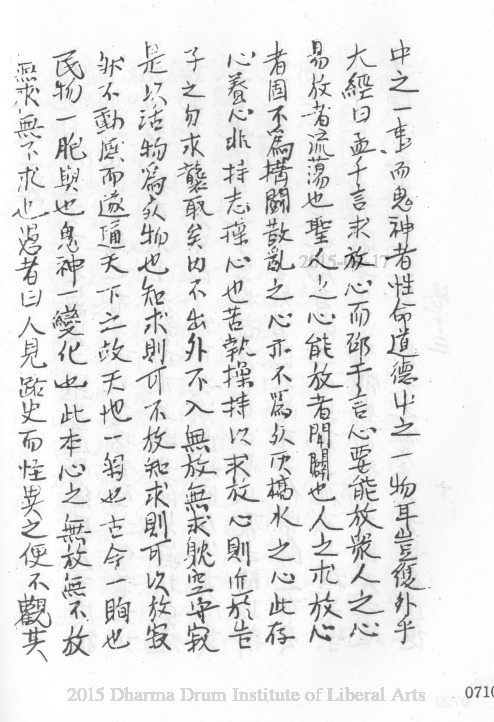 中之一事而鬼神者性命道德中之一物耳豈復外乎
大經曰孟子言求放心而邵子言心要能放衆人之心
易放者流蕩也聖人之心能放者開闢也人之求放心
者固不為撐鬭散亂之心亦不為死灰槁木之心此存
心養心非持志操心也苦執操持以求放心則近於告
子之勿求襲取矣內不出外不入無放無求躭空守寂
是以活物為死物也知求則可不放知求則可以放寂
然不動感而遂通天下之故天地一身也古今一瞬也
民物一胞與也鬼神一變化也此本心之無放無不放
無求無不求也愚者曰人見路史而怪異之便不觀其
2015-03-17
2015 Dharma Drum Institute of Liberal Arts
0710